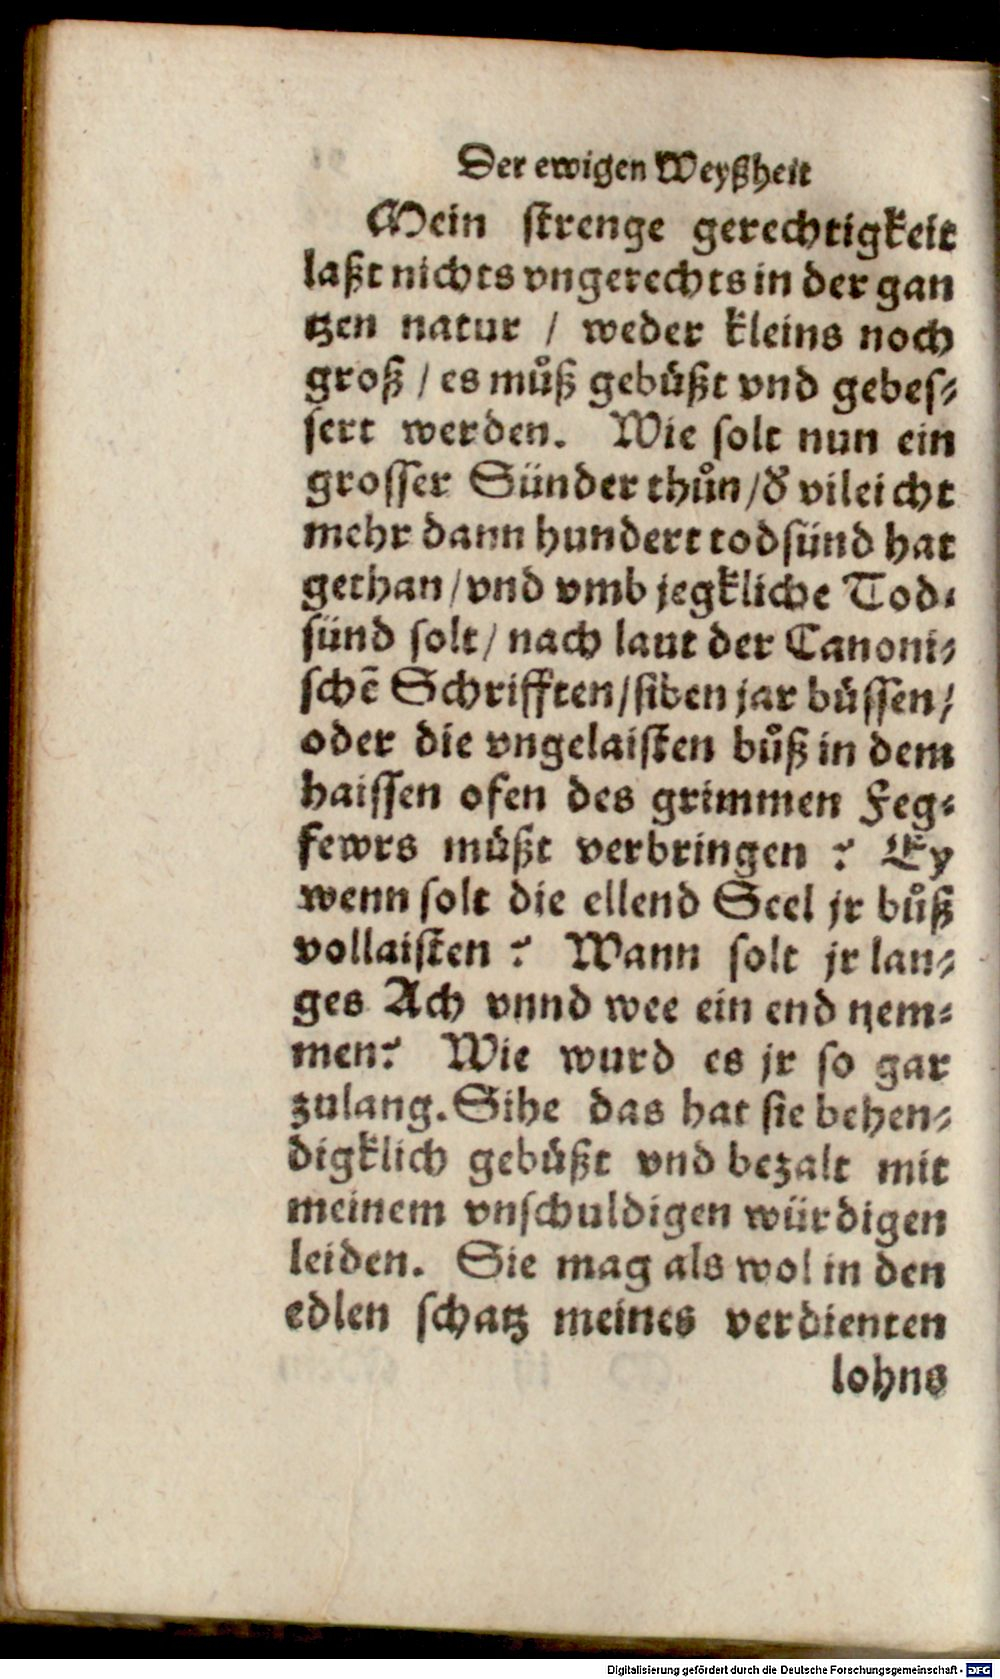 Der ewigen Weyßheit
Mein strenge gerechtigkeit
laßt nichts vngerechts in der gan
tzen natur / weder kleins noch
groß / es můß gebüßt vnd gebes⸗
sert werden. Wie solt nun ein
grosser Sünder thůn / d̕ vileicht
mehr dann hundert todsünd hat
gethan / vnd vmb jegkliche Tod⸗
sünd solt / nach laut der Canoni⸗
schē Schrifften / siben jar büssen /
oder die vngelaisten bůß in dem
haissen ofen des grimmen Feg⸗
fewrs müßt verbringen ? Ey
wenn solt die ellend Seel jr bůß
vollaisten ? Wann solt jr lan⸗
ges Ach vnnd wee ein end nem⸗
men? Wie wurd es jr so gar
zulang. Sihe das hat sie behen⸗
digklich gebüßt vnd bezalt mit
meinem vnschuldigen würdigen
leiden. Sie mag als wol in den
edlen schatz meines verdienten
lohns
Digitalisierung gefördert durch die Deutsche Forschungsgemeinschaft - DFG